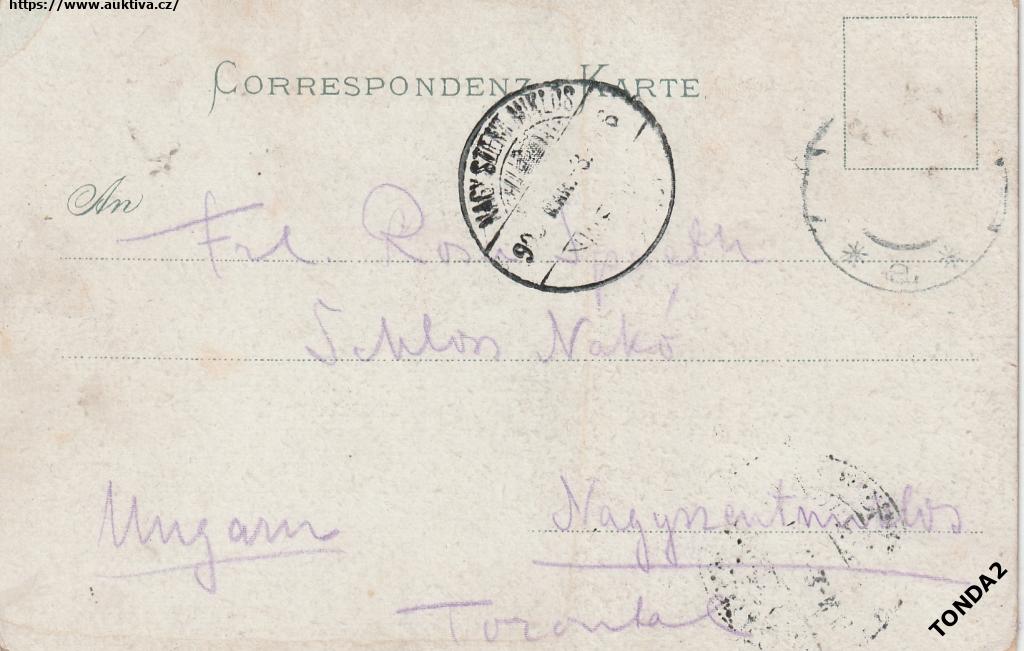 https://www.auktiva.cz/
CORRESPONDENZ-KARTE
NAGY SZENT MIKLÓS
An
Frl. Rosa
Schloss Nákó
Ungarn
Nagyszentmiklos
Torontal
TONDA2